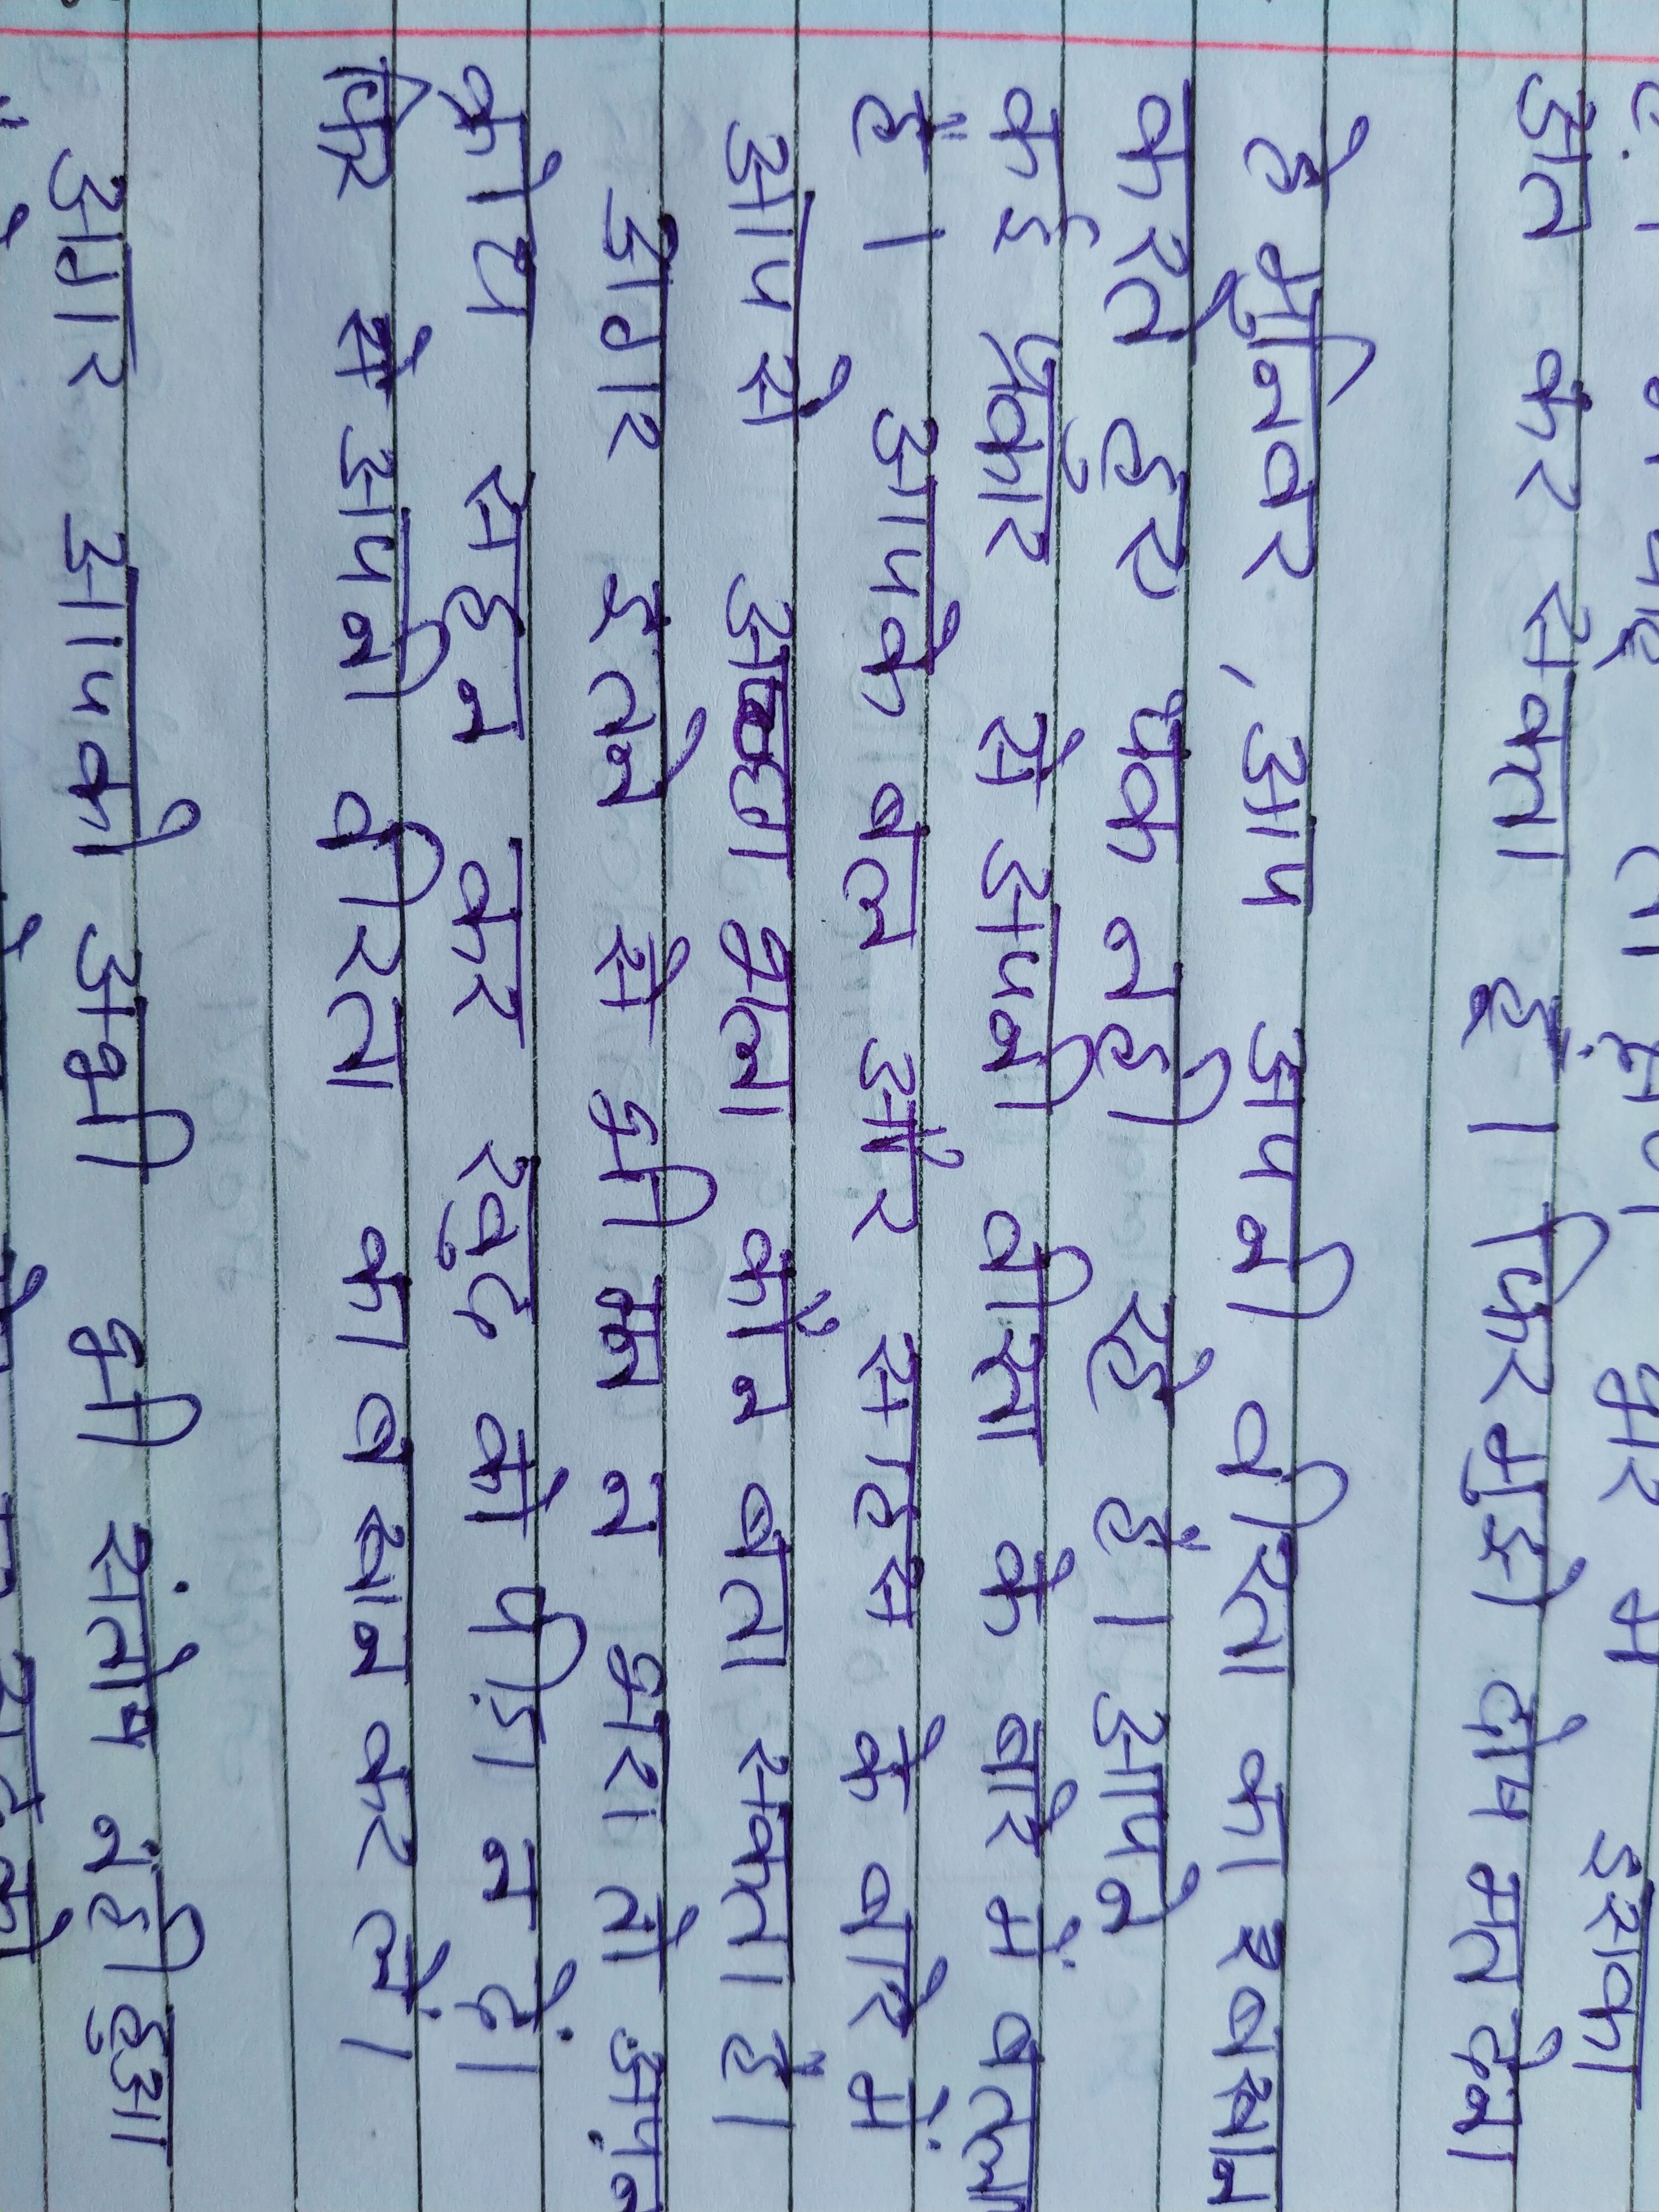 भर में इसका
अंत कर सकता हूं। फिर मुझे दोष मत देना
हे मुनिवर, आप अपनी वीरता का बखान
करते हुए थक नही रहे है। आपने
कई प्रकार से अपनी वीरता के बारे में बतला
है। आपके बल और साहस के बारे में
आप से अच्छा भला कौन बता सकता है।
अगर इतने से भी मन न भरा तो अपन
क्रोध सहन कर खुद को पीड़ा न दें।
फिर से अपनी वीरता का बखान कर लें।
अगर आपको अभी भी संतोष नही हुआ